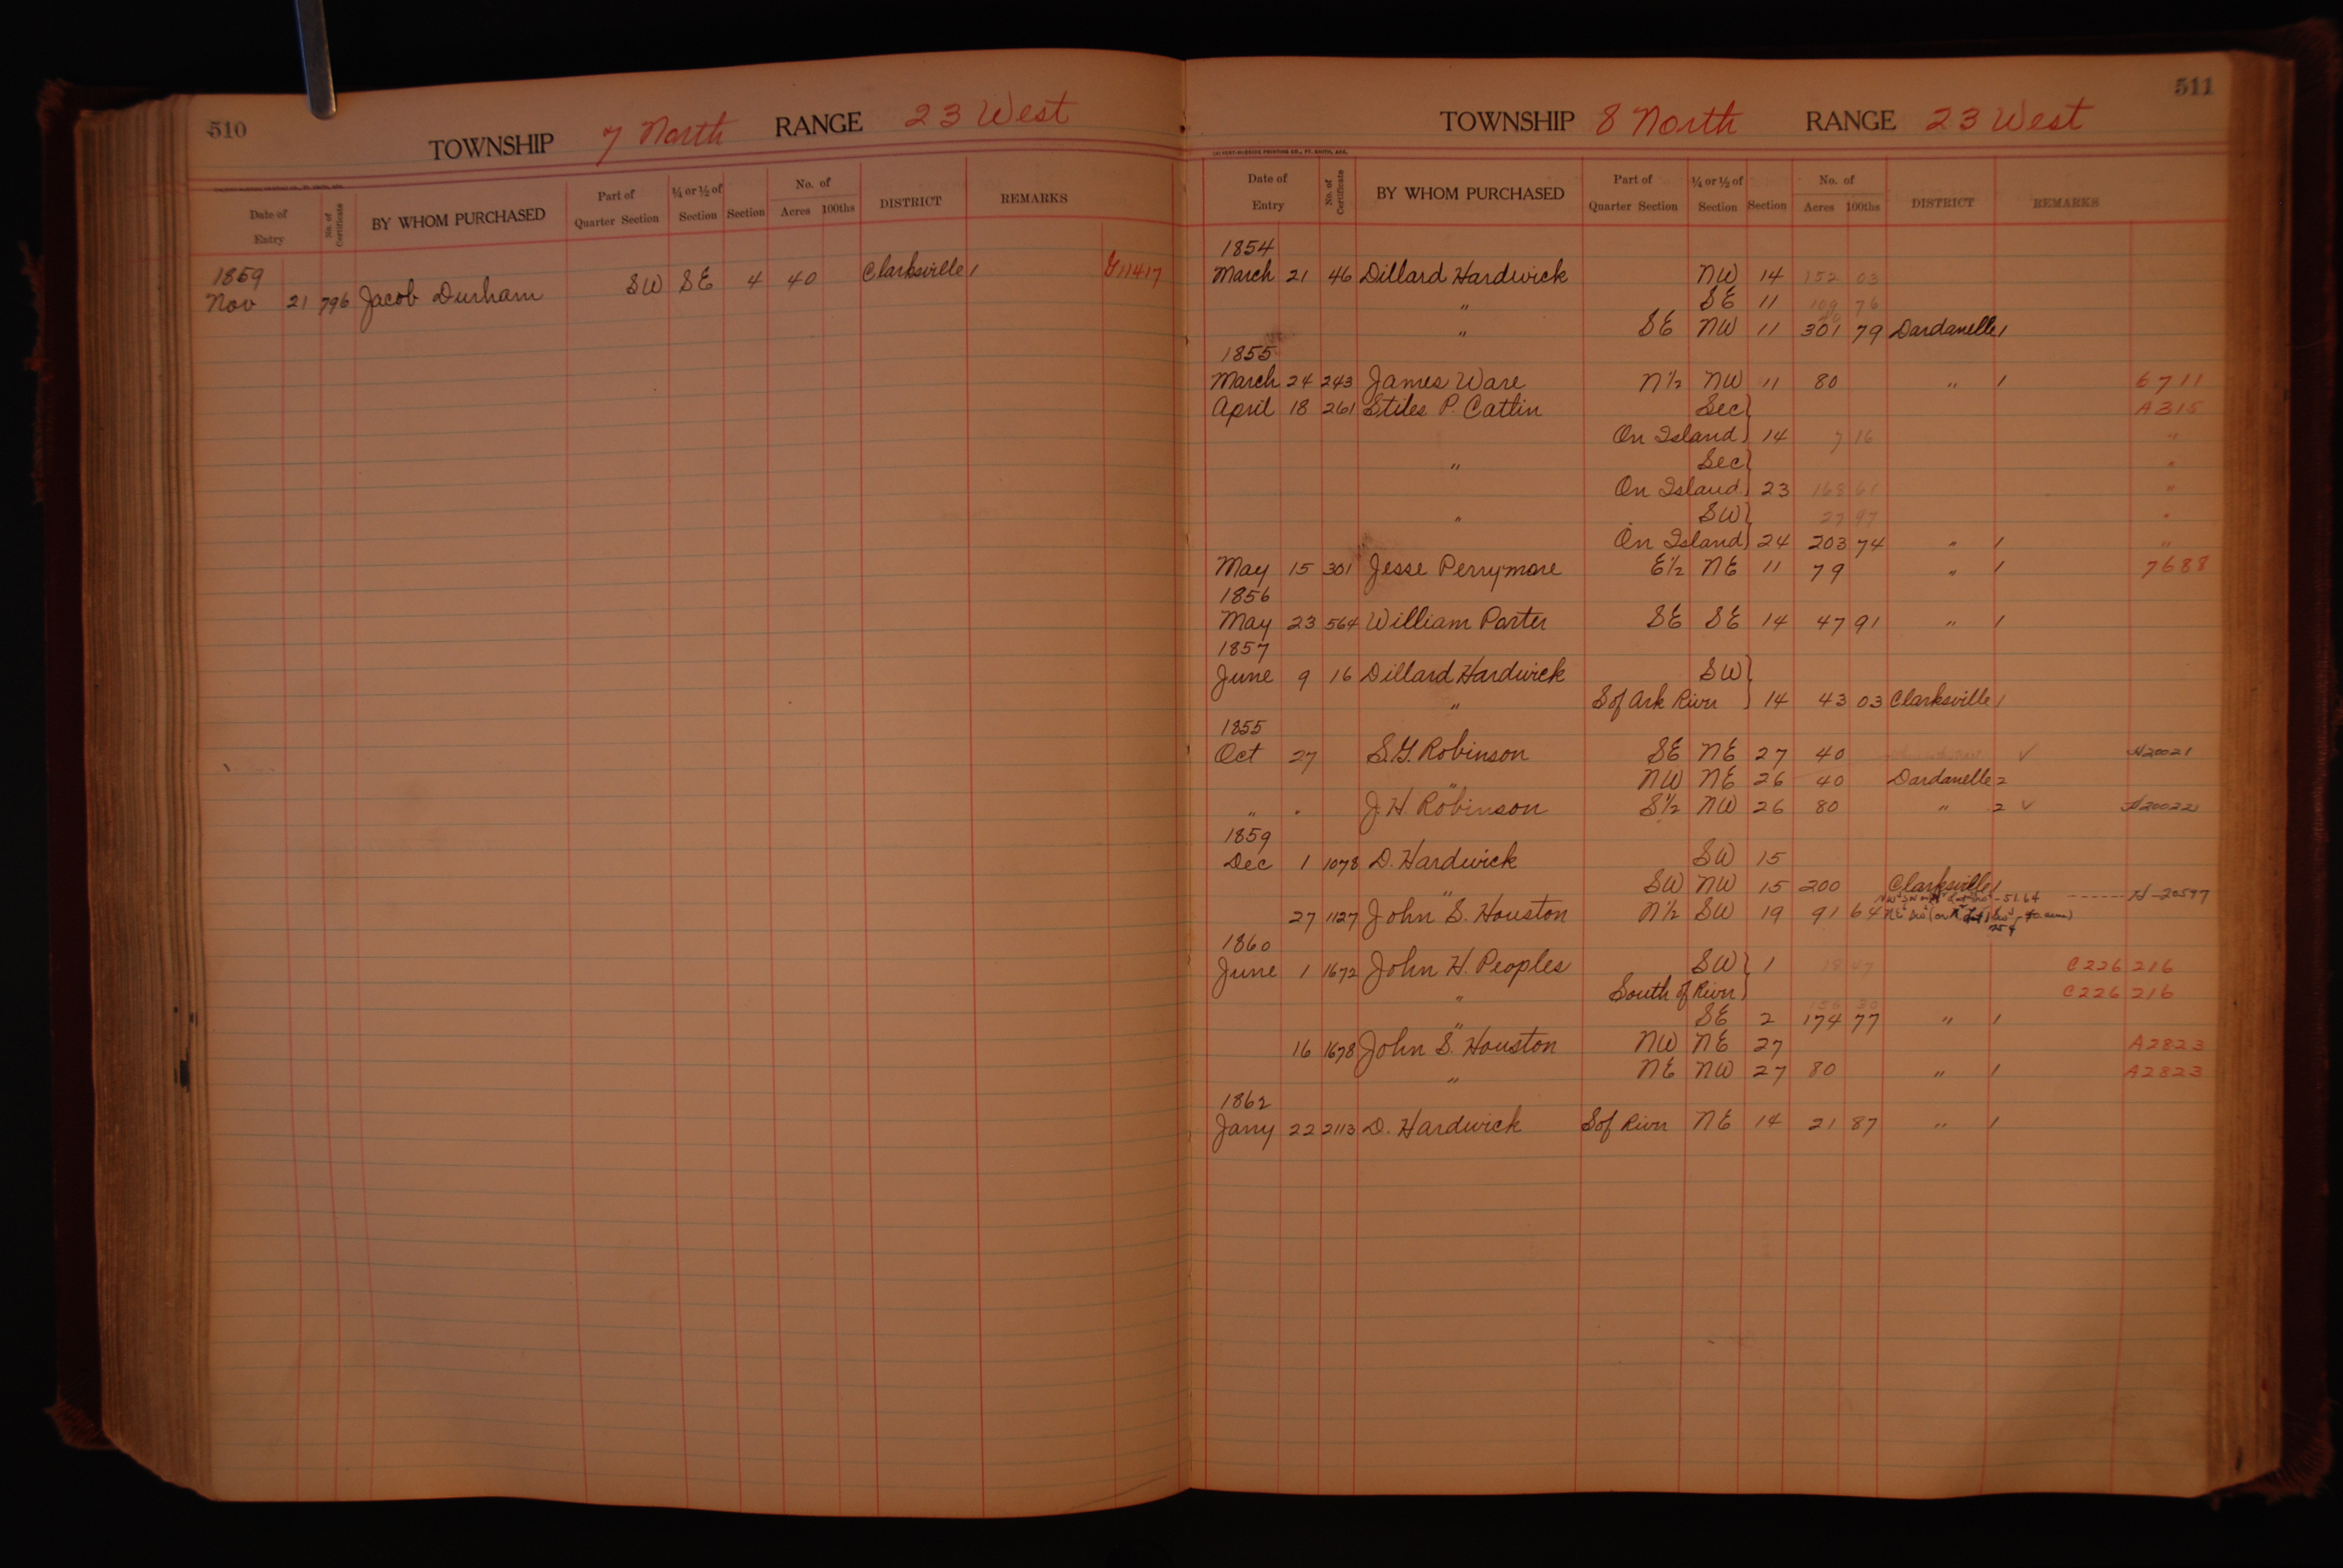 510
TOWNSHIP 7 North RANGE 23 West
Date of Entry No. of Certificate BY WHOM PURCHASED Part of Quarter Section ¼ or ½ of Section Section No. of Acres 100ths DISTRICT REMARKS
1859
Nov 21 796 Jacob Durham SW SE 4 40 Clarksville 1 G11417
511
TOWNSHIP 8 North RANGE 23 West
CALVERT-MCBRIDE PRINTING CO., FT. SMITH, ARK.
Date of Entry No. of Certificate BY WHOM PURCHASED Part of Quarter Section ¼ or ½ of Section Section No. of Acres 100ths DISTRICT REMARKS
1854
March 21 46 Dillard Hardwick NW 14 152 03
" SE 11 109 76
" SE NW 11 301 79 Dardanelle 1
1855
March 24 243 James Ware N½ NW 11 80 " 1 6711
April 18 261 Stiles P. Catlin Sec } A315
On Island } 14 7 16 "
" Sec } "
On Island } 23 168 61 "
" SW } 27 97 "
On Island } 24 203 74 " 1 "
May 15 301 Jesse Perrymore E½ NE 11 79 " 1 7688
1856
May 23 564 William Porter SE SE 14 47 91 " 1
1857
June 9 16 Dillard Hardwick SW }
" S of Ark River } 14 43 03 Clarksville 1
1855
Oct 27 S.G. Robinson SE NE 27 40 ✓ H20021
" NW NE 26 40 Dardanelle 2
" " J.H. Robinson S½ NW 26 80 " 2 ✓ H20022
1859
Dec 1 1078 D. Hardwick SW 15
" SW NW 15 200 Clarksville 1
- 51.64 ------ H-20597
27 1127 John S. Houston N½ SW 19 91 64
1860
June 1 1672 John H. Peoples SW } 1 18 47 C226 216
" South of River } C226 216
156 30
" SE 2 174 77 " 1
16 1678 John S. Houston NW NE 27 A2823
" NE NW 27 80 " 1 A2823
1862
Jany 22 2113 D. Hardwick S of River NE 14 21 87 " 1